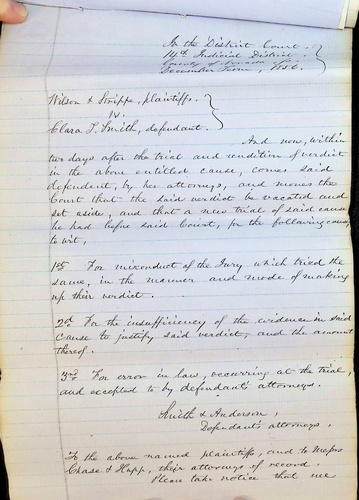 In the District Court
14th Judicial District
County of Nevada
December Term, 1856.
Wilson & Strippe, plaintiffs.
vs.
Clara T. Smith, defendant.
And now, within
two days after the trial and rendition of verdict
in the above entitled cause, comes said
defendant, by her attorneys, and moves the
Court that the said verdict be vacated and
set aside, and that a new trial of said cause
be had before said Court, for the following causes
to wit,
1st For misconduct of the Jury which tried the
same, in the manner and mode of making
up their verdict.
2d For the insufficiency of the evidence in said
Cause to justify said verdict, and the amount
thereof.
3rd For error in law, occurring at the trial,
and excepted to by defendant's attorneys.
Smith & Anderson,
Defendant's attorneys.
To the above named plaintiffs, and to Messrs
Chase & Hupp, their attorneys of record.
Please take notice that we